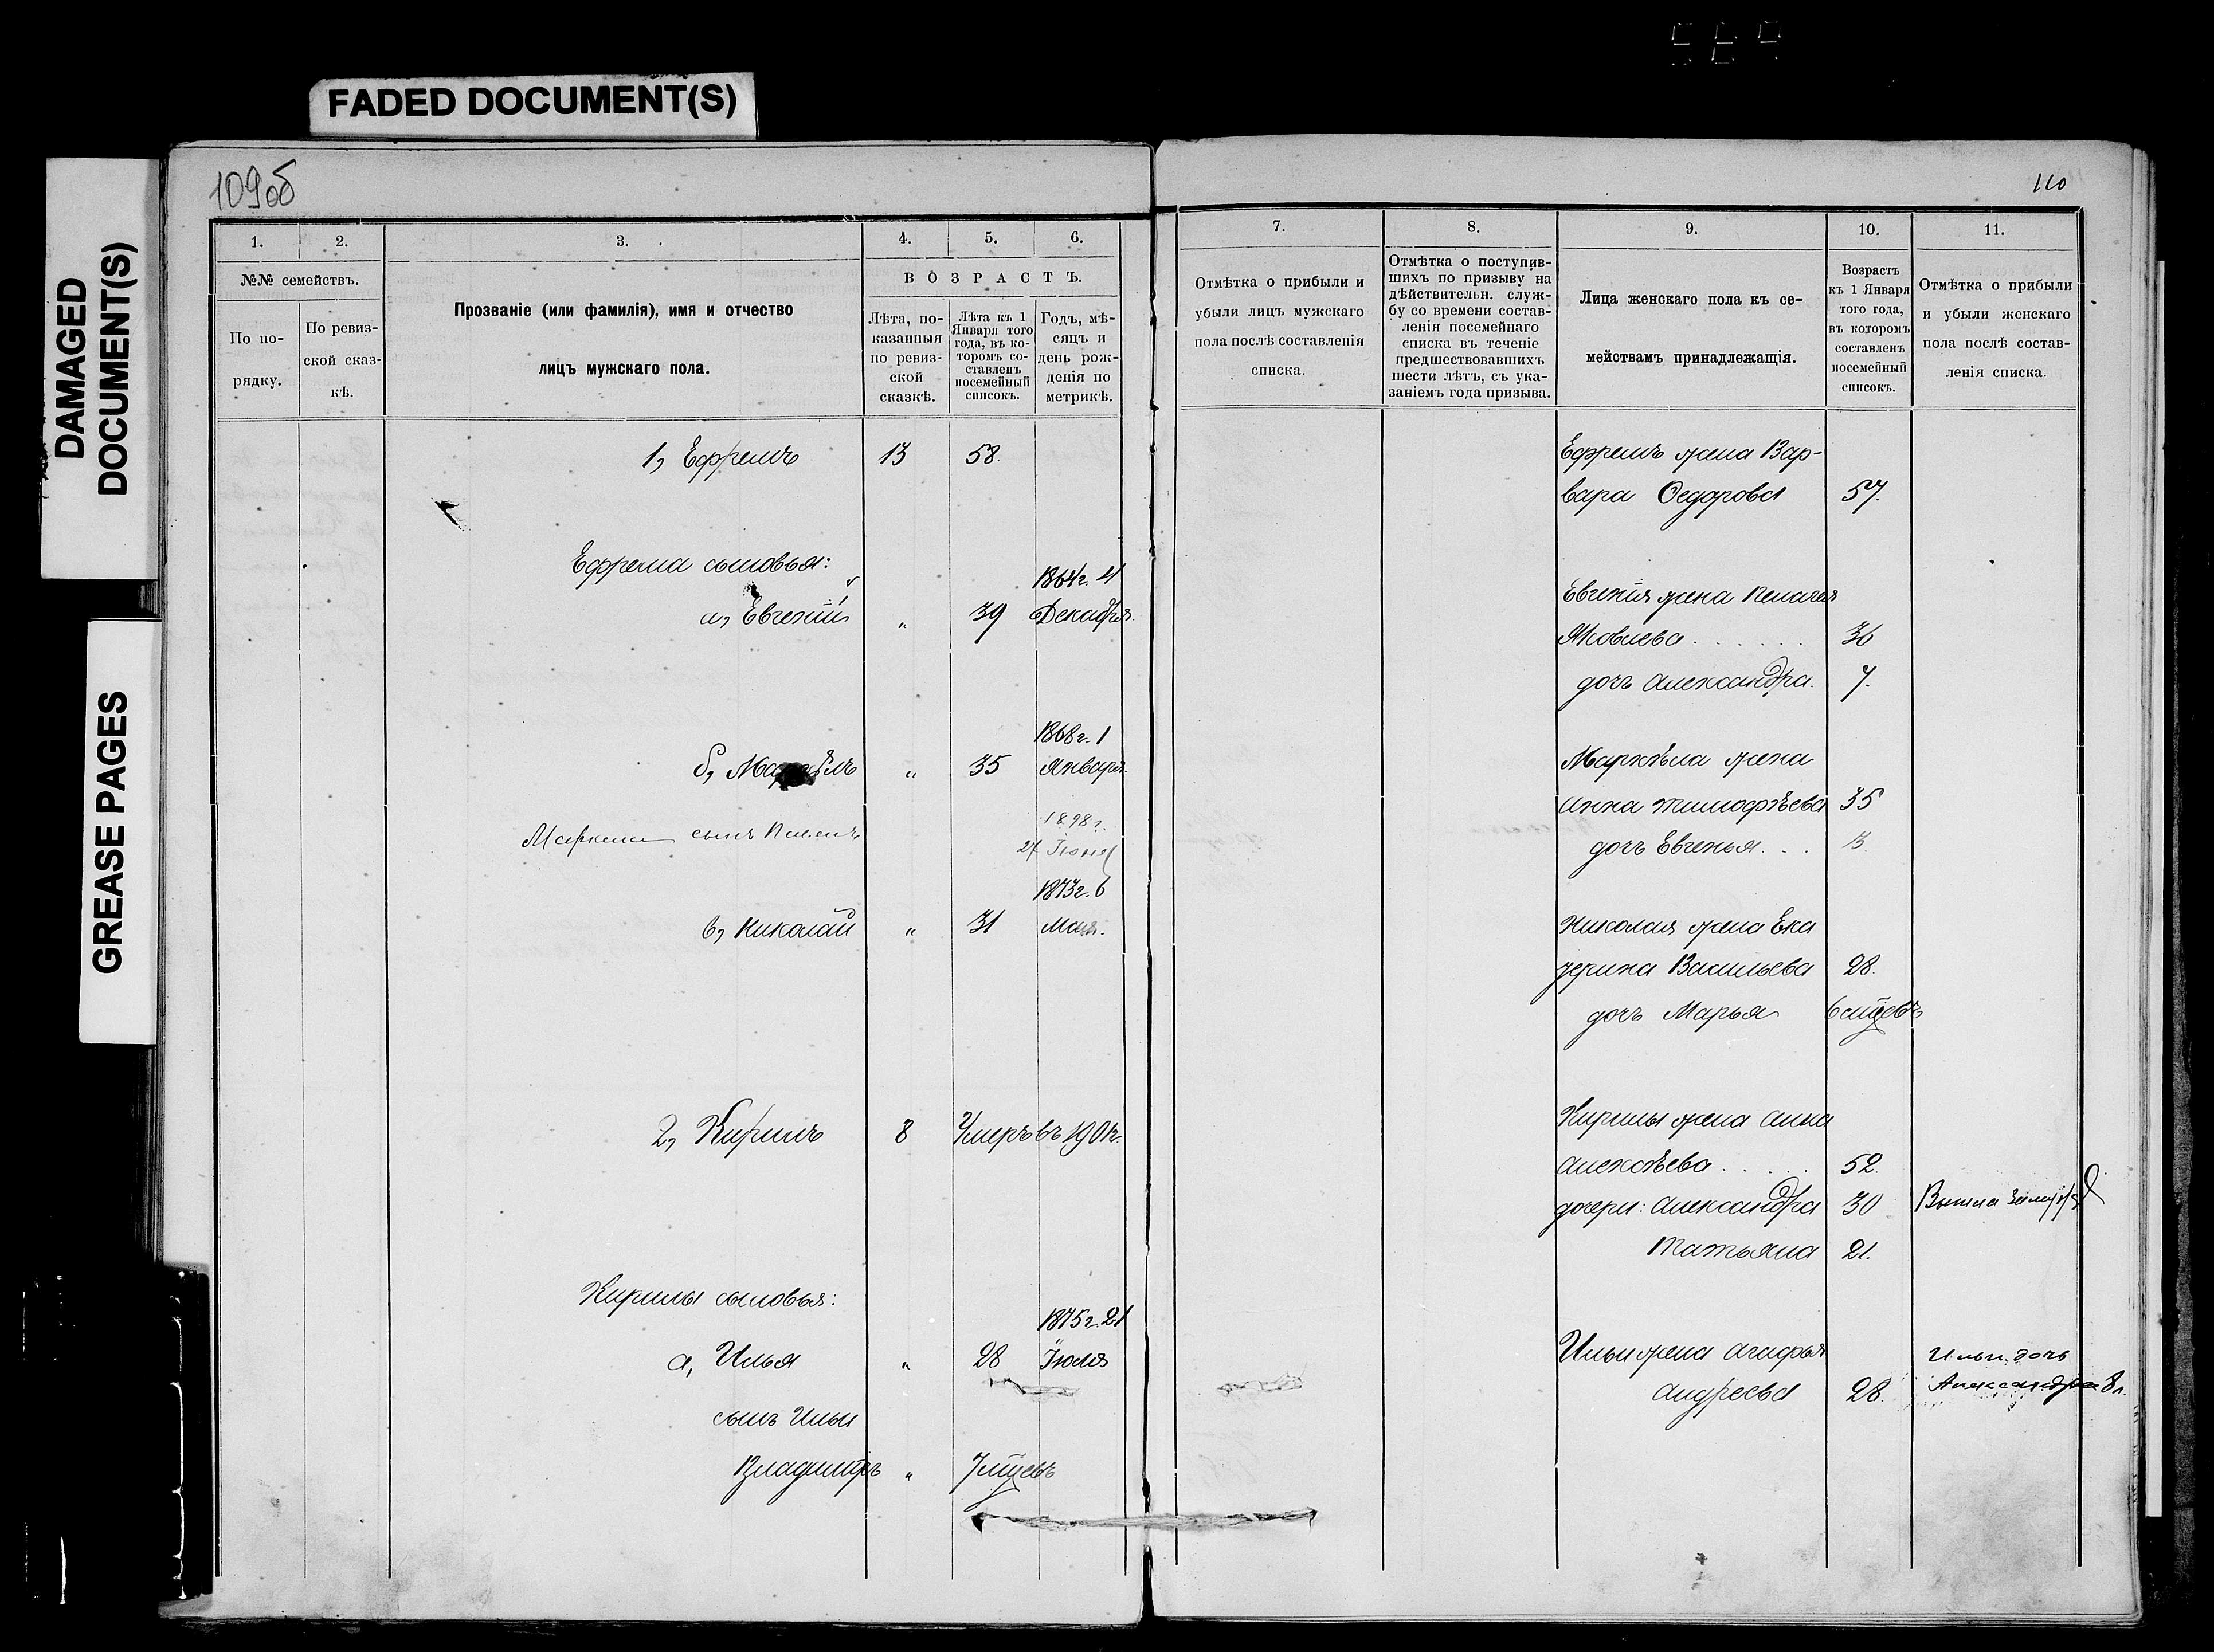 FADED DOCUMENT(S)
DAMAGED
DOCUMENT(S)
GREASE PAGES
109об
1.
2.
3.
4.
5.
6.
№№ семействъ.
По по-
рядку.
По ревиз-
ской сказ-
кѣ.
Прозваніе (или фамилія), имя и отчество
лицъ мужскаго пола.
ВОЗРАСТЪ.
Лѣта, по-
казанныя
по ревиз-
ской
сказкѣ.
Лѣта къ 1
Января того
года, въ ко-
торомъ со-
ставленъ
посемейный
списокъ.
Годъ, мѣ-
сяцъ и
день рож-
денія по
метрикѣ.
1, Ефремъ 13 58.
Ефрема сыновья:
1864г. 4
а, Евгеній „ 39 Декабря.
1868г. 1
б, „ 35 Января.
1898г.
Маркела сынъ
27 Іюня
1873г. 6
в, Николай „ 31 Мая.
2, Кирилъ 8 Умеръ въ 1901г.
Кирилы сыновья:
1875г. 21
а, Илья „ 28 Іюля
сынъ Ильи
Владиміръ „ 7 мѣсяцевъ
110
7.
8.
9.
10.
11.
Отмѣтка о прибыли и
убыли лицъ мужскаго
пола послѣ составленія
списка.
Отмѣтка о поступив-
шихъ по призыву на
дѣйствительн. служ-
бу со времени состав-
ленія посемейнаго
списка въ теченіе
предшествовавшихъ
шести лѣтъ, съ ука-
заніемъ года призыва.
Лица женскаго пола къ се-
мействамъ принадлежащія.
Возрастъ
къ 1 Января
того года,
въ которомъ
составленъ
посемейный
списокъ.
Отмѣтка о прибыли
и убыли женскаго
пола послѣ состав-
ленія списка.
Ефремъ жена Вар-
вара Ѳедорова 57.
Евгенія жена Пелагея
Яковлева . . . . . . 36
дочь Александра. 7.
Маркѣла жена
Анна Тимофѣева 35
дочь Евгенья. . . 13.
Николая жена Ека
терина Васильева 28.
дочь Марья 6 мѣсяцевъ
Кирилы жена Анна
Алексѣева . . . . . 52.
дочери: Александра 30 Вышла замуж
Татьяна 21.
Ильи жена Агафья
Андреева 28.
Ильи дочь
Александра 8 л.